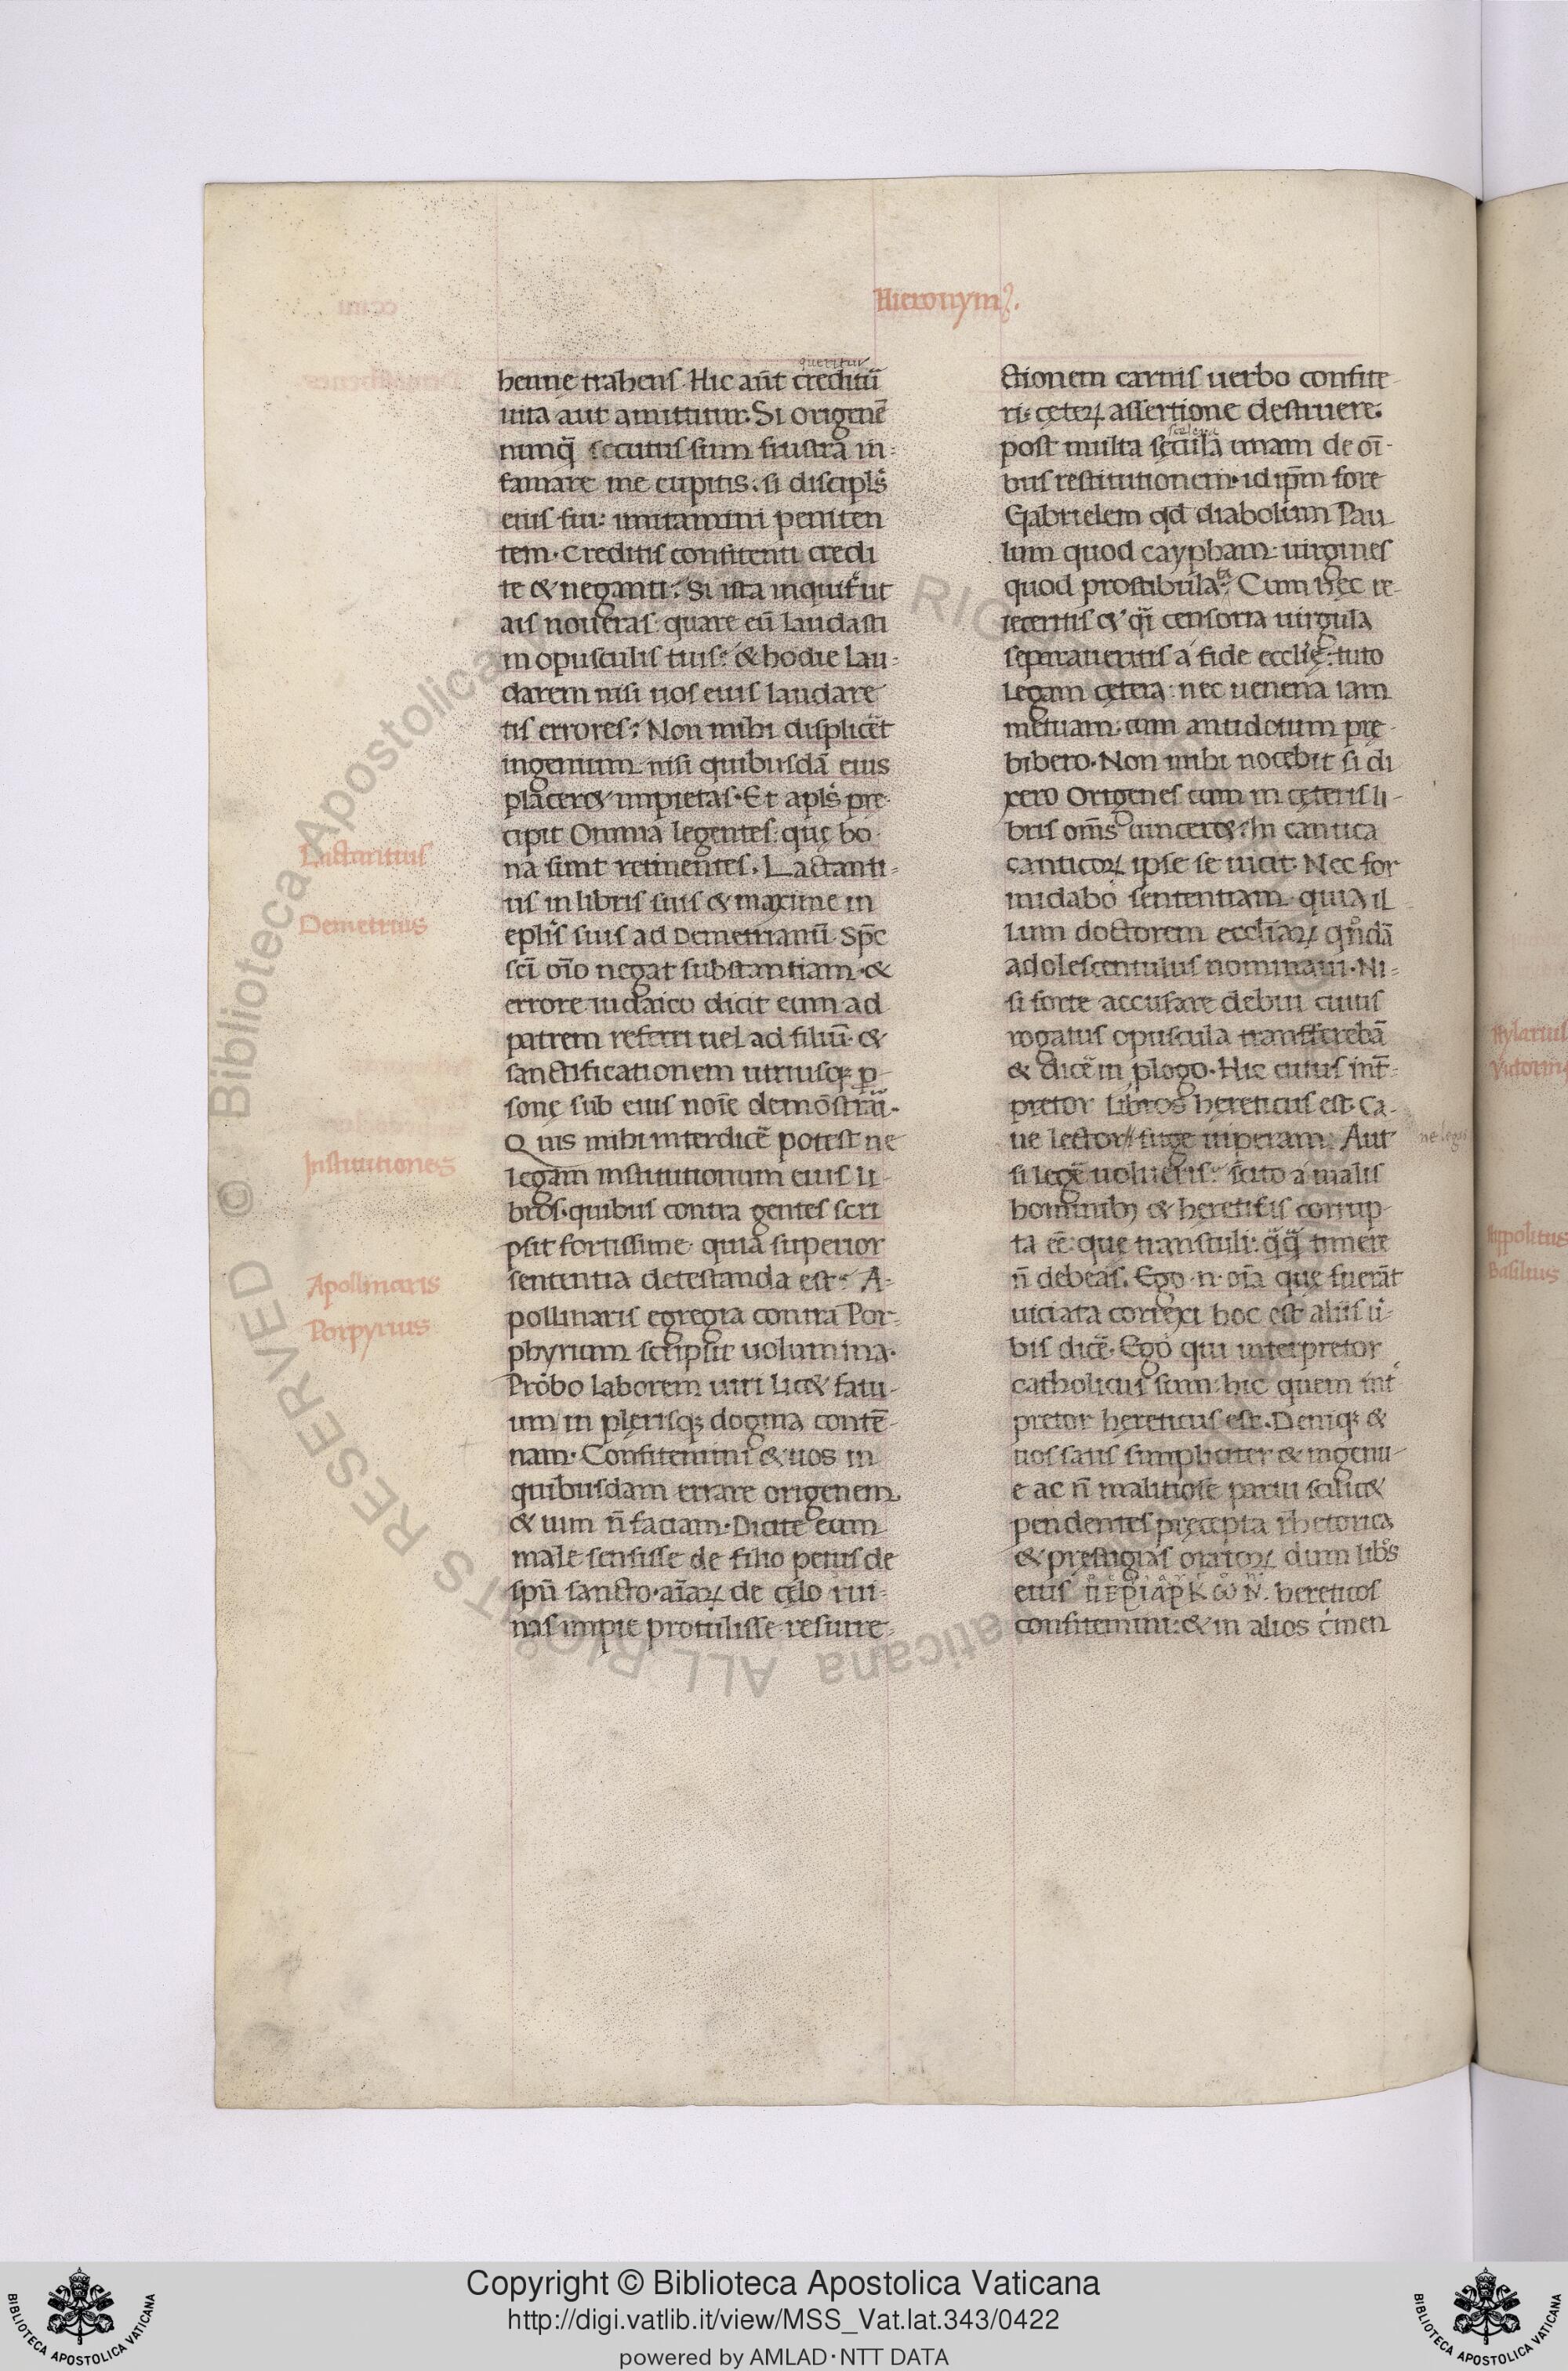 Hieronymꝰ.
queritur
henne trahens. Hic aut̄ creditū
uita aut amittitur. Si origenē
nunq̄ secutus sum frustra in-
famare me cupitis. si discipls̄
eius fui: imitamini peniten
tem. Creditis confitenti credi
te & neganti. Si ista inquit ut
ais noueras: quare eū laudasti
in opusculis tuis: & hodie lau-
darem nisi uos eius laudare
tis errores: Non mihi displicēt
ingenium nisi quibusdā eius
placer& impietas. Et apls̄ pre-
cipit Omnia legentes: quę bo
na sunt retinentes. Lactanti-
us in libris suis & maxime in
epl̄is suis ad Demetrianū. Sp̄c
sc̄i oīo negat substantiam. &
errore iudaico dicit eum ad
patrem referri uel ad filiū. &
sanctificationem utriusq; ꝑ-
sonę sub eius noīe demōstrari.
Quis mihi interdicē potest ne
legam institutionum eius li-
bros. quibus contra gentes scri
psit fortissime. quia superior
sententia detestanda est. A-
pollinaris egregia contra Por-
phyrium scripsit uolumina.
Probo laborem uiri lic& fatu-
um in plerisq; dogma contē-
nam. Confitemini & uos in
quibusdam errare origenem
& uim n̄ faciam. Dicite eum
male sensisse de filio peius de
spū sancto. aīaꝝ de cęlo rui-
nas impie protulisse. resurre-
Lactantius
Demetrius
Institutiones
Apollinaris
Porpyrius
ctionem carnis uerbo confite-
ri: ceteꝝ assertione destruere.
post multa sęcula unam de oī-
bus restitutionem. id ip̄m fore
Gabrielem qd̄ diabolum Pau
lum quod caypham: uirgines
quod prostibula. Cum hęc re-
ieceritis & q̄i censoria uirgula
separaueritis a fide ecclīę: tuto
legam cętera: nec uenena iam
metuam. cum antidotum pre
bibero. Non mihi nocebit si di
xero Origenes cum in cęteris li-
bris om̄s uincer&: In cantica
canticoꝝ ipse se uicit. Nec for
midabo sententiam quia il
lum doctorem eccliaꝝ qn̄dā
adolescentulus nominaui. Ni-
si forte accusare debui cuius
rogatus opuscula transferebā
& dicē in plogo. Hic cuius int̄-
pretor libros hereticus est. Ca-
ue lector fuge uiperam. Aut
si legē uolueris: scito a malis
hominibꝫ & hereticis corrup
ta eē: que transtuli: q̄q̄ timere
n̄ debeas. Ego .n. oīa quę fuerāt
uiciata correxi hoc est aliis ū-
bis dicē. Ego qui interpretor
catholicus sum: hic quem int̄
pretor hereticus est. Deniq; &
uos satis simpliciter & ingenu-
e ac n̄ malitiose parui scilic&
pendentes pręcepta rhetorica
& prestigias oratoꝝ dum lib̄s
eius ΠΕΡΙΑΡΚωΝ. hereticos
confitemini: & in alios c̄men
Hylarius
Hippolitus
Basilius
Copyright © Biblioteca Apostolica Vaticana
http://digi.vatlib.it/view/MSS_Vat.lat.343/0422
powered by AMLAD·NTT DATA
BIBLIOTECA APOSTOLICA VATICANA
BIBLIOTECA APOSTOLICA VATICANA